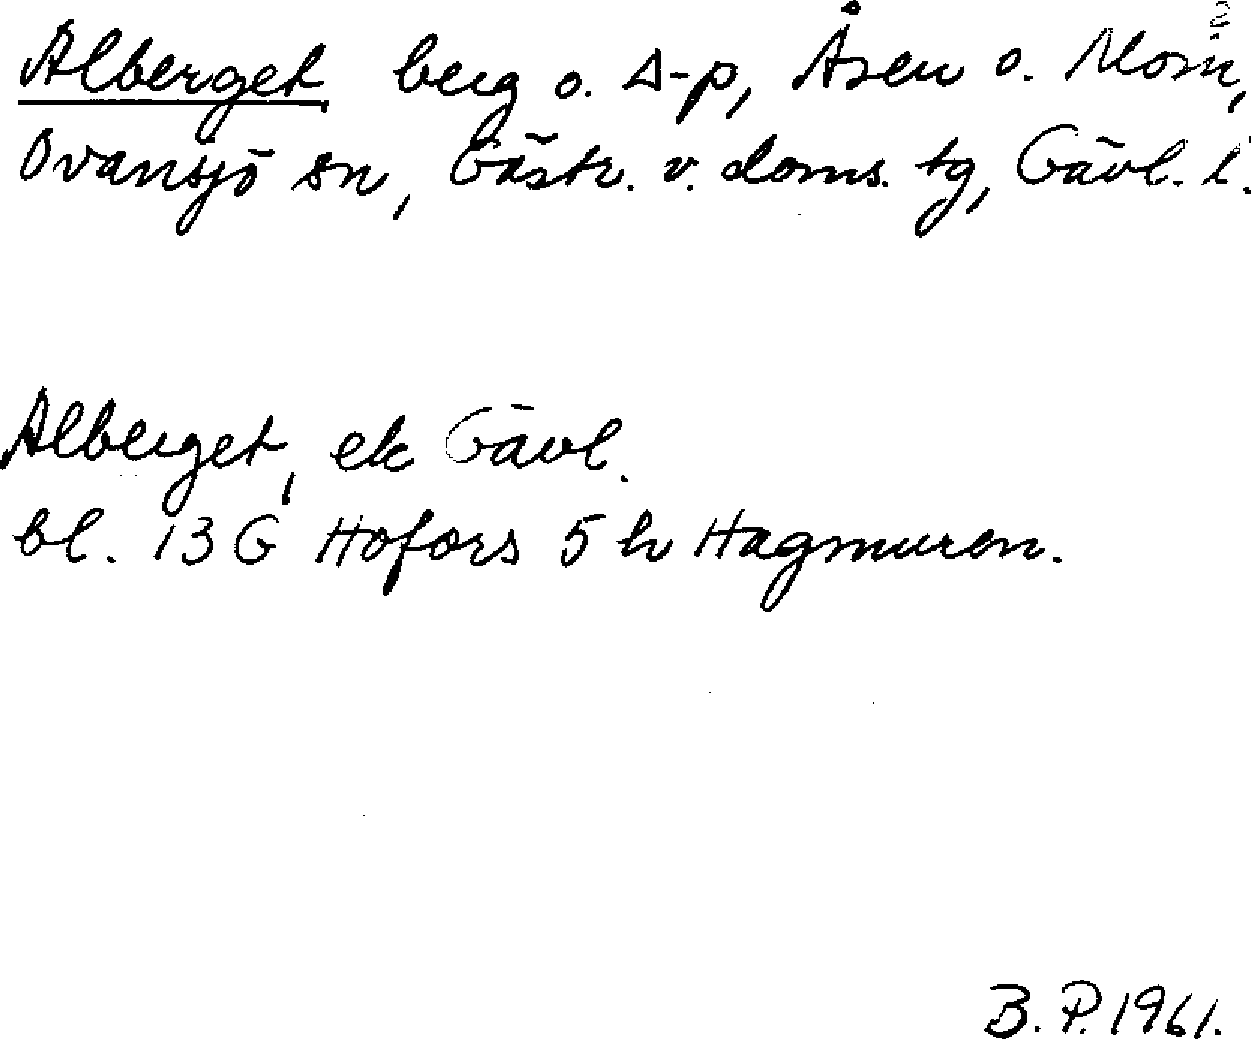 Alberget berg o. Δ-p, Åsen o. Mom,
Ovansjö sn, Gästr. v. doms. tg, Gävl. l.
Alberget, ek Gävl.
bl. 13 G Hofors 5 h Hagmuren.
B. P. 1961.